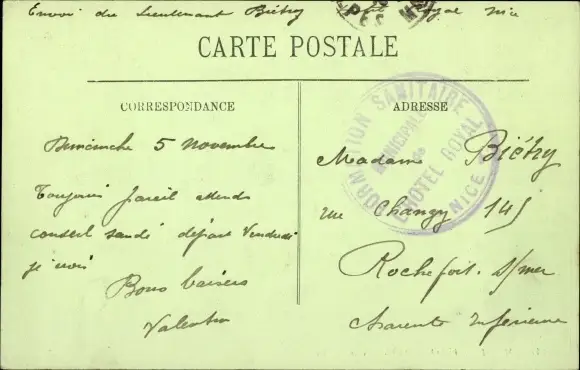 Envoi du Lieutenant Biétry Hotel Royal Nice
CARTE POSTALE
CORRESPONDANCE
ADRESSE
FORMATION SANITAIRE
MUNICIPALE
de
L'HOTEL ROYAL
NICE
Dimanche 5 Novembre
Toujours pareil attends
conseil santé départ Vendredi
je crois
Bons baisers
Valentin
Madame Biétry
rue Changy 145
Rochefort. s/mer
Charente Inférieure